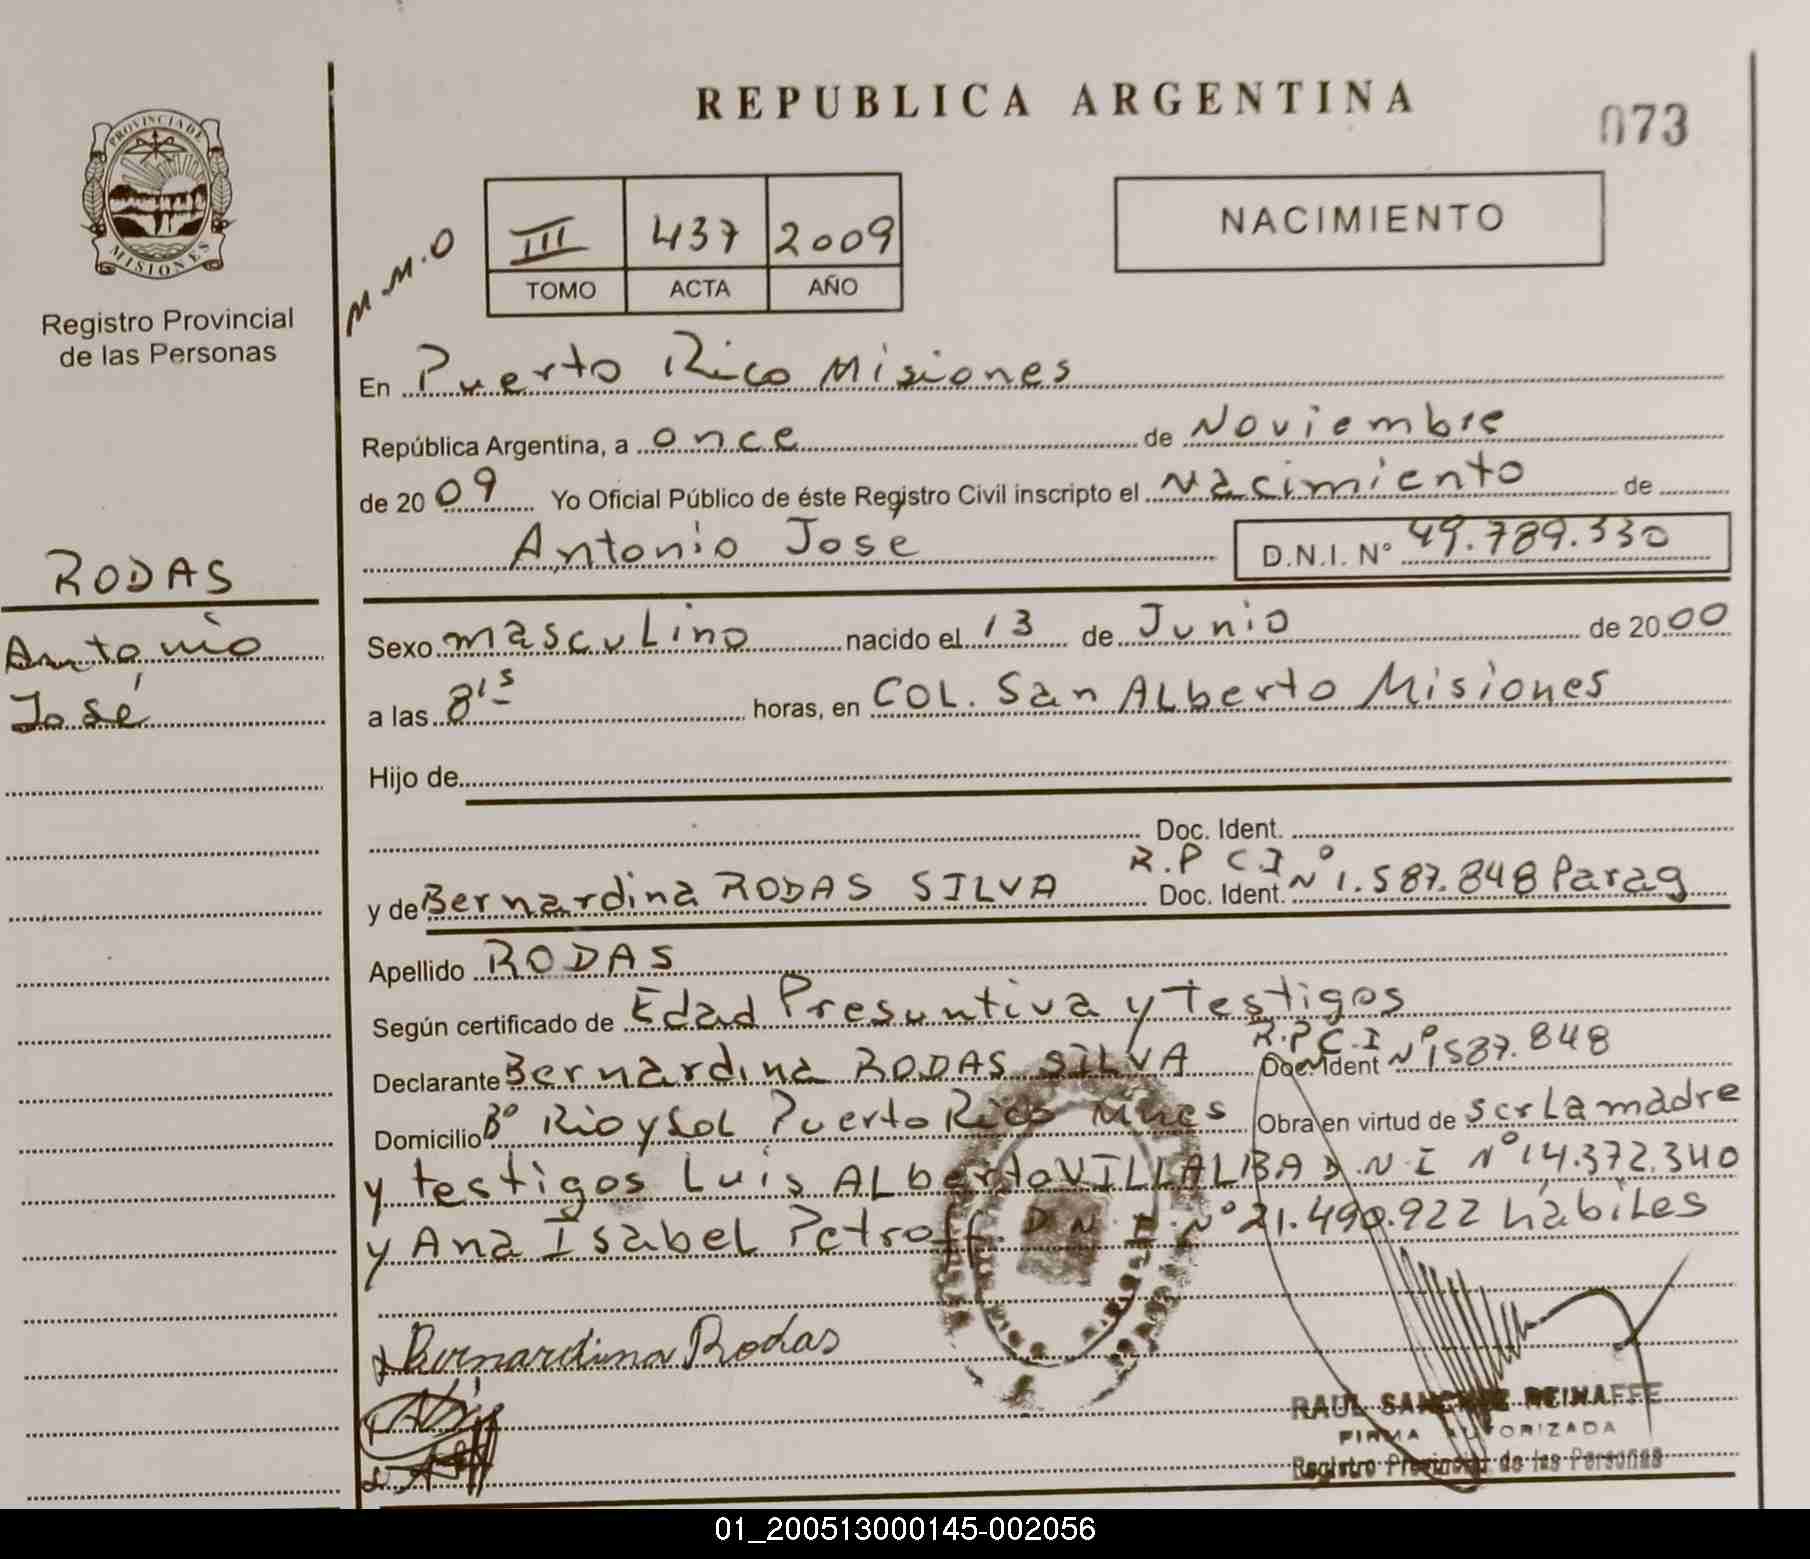 REPUBLICA ARGENTINA
073
PROVINCIA DE
MISIONES
Registro Provincial
de las Personas
M.M.O
III 437 2009
TOMO ACTA AÑO
NACIMIENTO
En Puerto Rico Misiones
República Argentina, a once de Noviembre
de 2009 Yo Oficial Público de éste Registro Civil inscripto el Nacimiento de
Antonio José D.N.I. N° 49.789.330
RODAS
Antonio
José
Sexo masculino nacido el 13 de Junio de 2000
a las 8's horas, en COL. San Alberto Misiones
Hijo de
Doc. Ident.
R.P C.I
y de Bernardina RODAS SILVA Doc. Ident. N° 1.587.848 Parag
Apellido RODAS
Según certificado de Edad Presuntiva y Testigos
Declarante Bernardina RODAS SILVA R.P.C.I Doc. Ident N° 1587.848
Domicilio B° Rio y Sol Puerto Rico Mnes Obra en virtud de ser La madre
y testigos Luis ALberto VILLALBA D.N.I N° 14.372.340
y Ana Isabel Petroff. D.N.I. N° 21.490.922 hábiles
Bernardina Rodas
RAUL SANCHEZ REINAFFE
FIRMA AUTORIZADA
Registro Provincial de las Personas
01_200513000145-002056